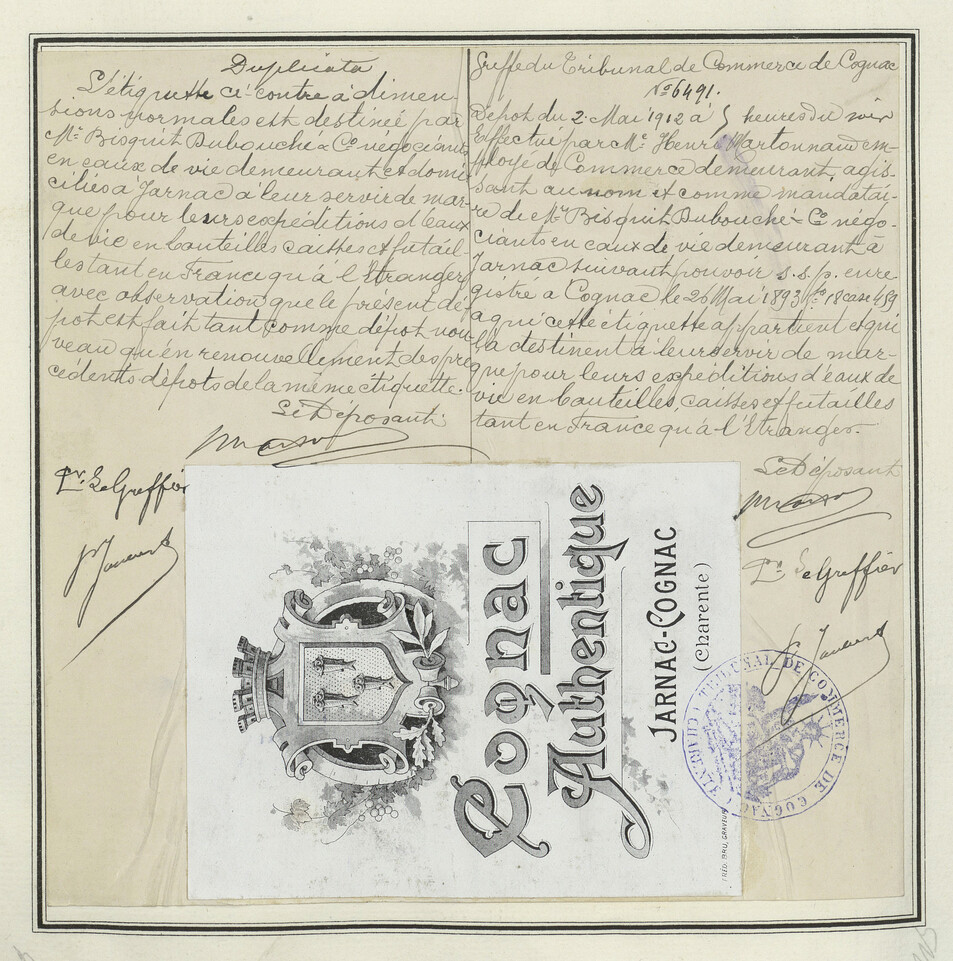 Duplicata
L'étiquette ci-contre à dimen-
sions normales est destinée par
Mrs Bisquit Dubouché & Co négociants
en eaux de vie demeurant et domi
ciliés à Jarnac à leur servir de mar-
que pour leurs expéditions d'eaux
de vie en bouteilles caisses et futail-
les tant en France qu'à l'Etranger
avec observation que le présent dé
pot est fait tant comme dépot nou-
veau qu'en renouvellement des pré
cédents dépots de la même étiquette.
Le Déposant
Pr. Le Greffier
Greffe du Tribunal de Commerce de Cognac
No 6491.
Dépot du 2 Mai 1912 à 5 heures du soir
Effectué par Mr Henri Martonnaud em-
ployé de Commerce demeurant, agis-
sant au nom et comme mandatai-
re de Mrs Bisquit Dubouché & Co négo-
ciants en eaux de vie demeurant à
Jarnac suivant pouvoir s.s.p. enre
gistré à Cognac le 26 Mai 1893 fo 18 case 459
à qui cette étiquette appartient et qui
la destinent à leur servir de mar-
que pour leurs expéditions d'eaux de
vie en bouteilles, caisses et futailles
tant en France qu'à l'Etranger.
Le Déposant
Pr. Le Greffier
Cognac
Authentique
JARNAC-COGNAC
(Charente)
FRÉD. BRU, GRAVEUR
TRIBUNAL DE COMMERCE DE COGNAC (CHARENTE)